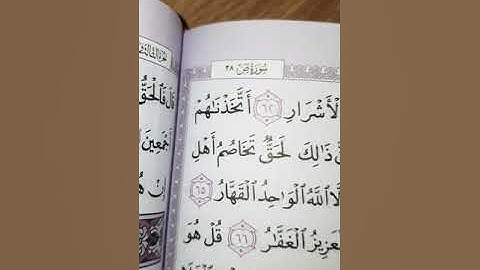 سُورَةُ صٓ ٣٨
ٱلْأَشْرَارِ ٦٢ أَتَّخَذْنَٰهُمْ
ذَٰلِكَ لَحَقٌّ تَخَاصُمُ أَهْلِ
ٱللَّهُ ٱلْوَٰحِدُ ٱلْقَهَّارُ ٦٥
ٱلْغَفَّٰرُ ٦٦ قُلْ هُوَ
قَالَ فَٱلْحَقُّ
أَجْمَعِينَ
إِنْ هُوَ